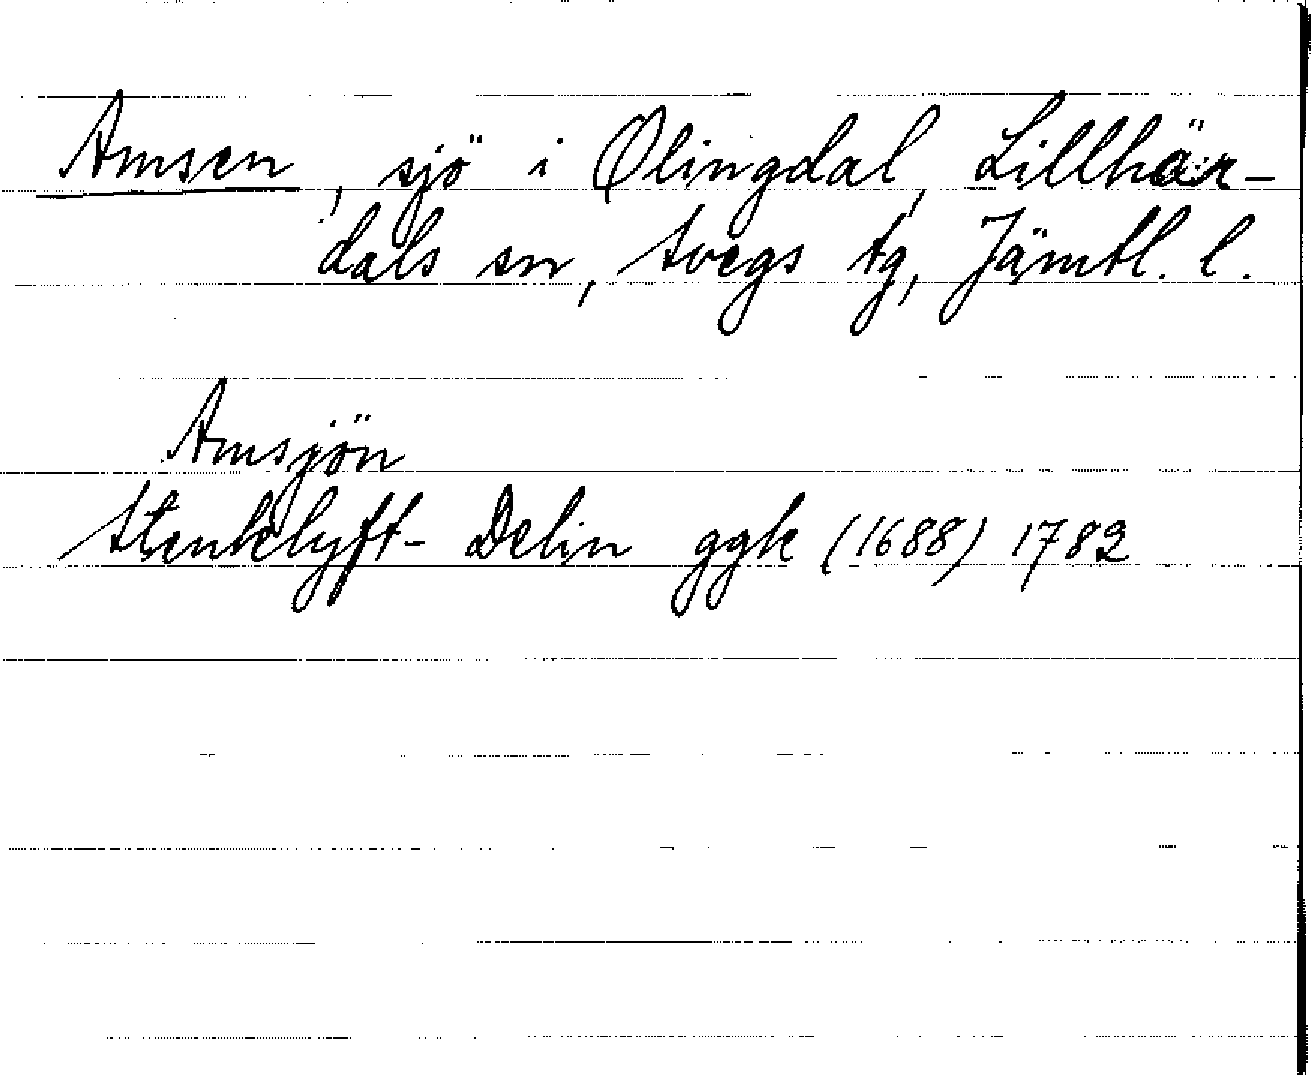 Amsen, sjö i Ølingdal, Lillhär-
dals sn, Svegs tg, Jämtl. l.
Amsjön
Stenklyft- Delin ggk (1688) 1782